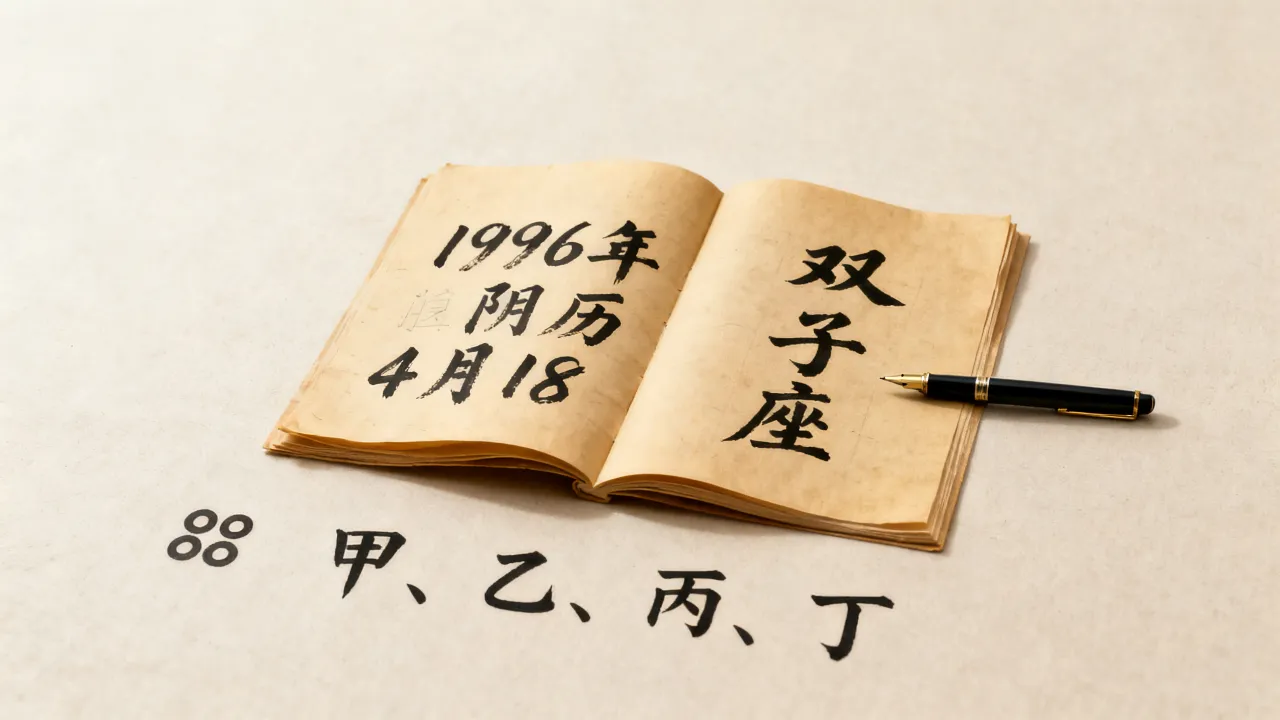 1996年
阴历
4月18
双
子
座
甲、乙、丙、丁